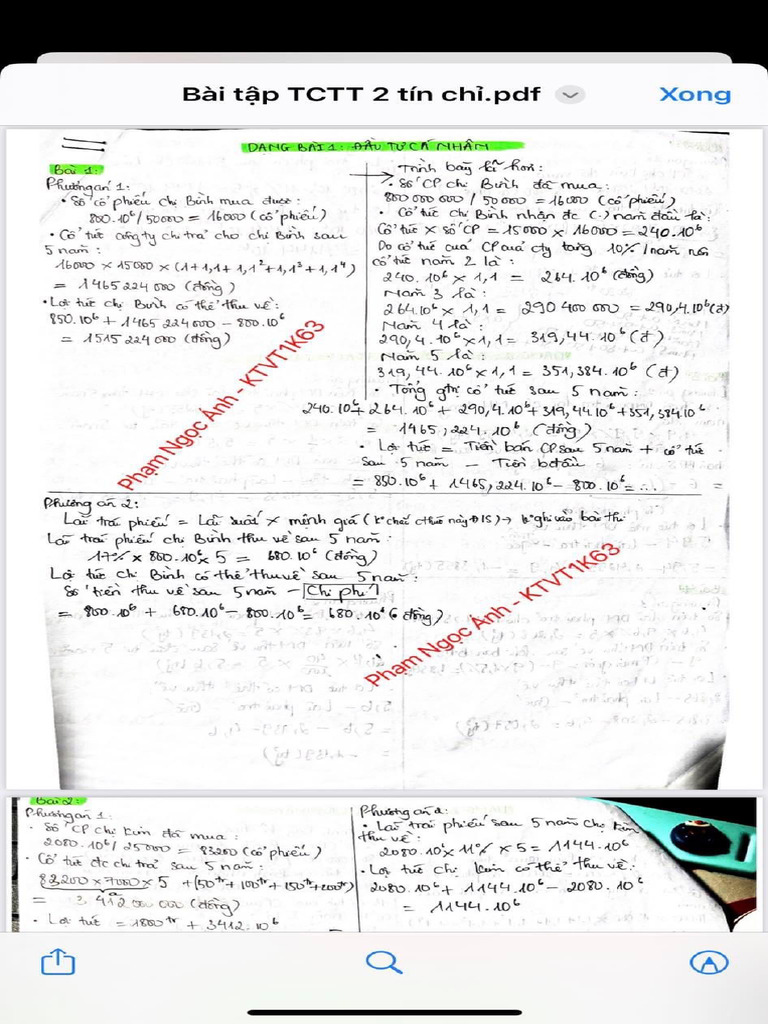 Bài tập TCTT 2 tín chỉ.pdf
Xong
DẠNG BÀI 1: ĐẦU TƯ CÁ NHÂN
Bài 1:
Phương án 1:
• Số cổ phiếu chị Bình mua được:
800.10⁶ / 50000 = 16000 (cổ phiếu)
• Cổ tức công ty chi trả cho chị Bình sau
5 năm:
16000 × 15000 × (1+1,1+1,1²+1,1³+1,1⁴)
= 1465 224 000 (đồng)
• Lợi tức chị Bình có thể thu về:
850.10⁶ + 1465 224 000 - 800.10⁶
= 1515 224 000 (đồng)
Trình bày kĩ hơn:
• Số CP chị Bình đã mua:
800 000 000 / 50 000 = 16000 (cổ phiếu)
• Cổ tức chị Bình nhận đc (.) năm đầu là:
Cổ tức × số CP = 15000 × 16000 = 240.10⁶
Do cổ tức của CP của cty tăng 10% / năm nên
cổ tức năm 2 là:
240.10⁶ × 1,1 = 264.10⁶ (đồng)
Năm 3 là:
264.10⁶ × 1,1 = 290 400 000 = 290,4.10⁶ (đ)
Năm 4 là:
290,4.10⁶ × 1,1 = 319,44.10⁶ (đ)
Năm 5 là:
319,44.10⁶ × 1,1 = 351,384.10⁶ (đ)
• Tổng gtrị cổ tức sau 5 năm:
240.10⁶ + 264.10⁶ + 290,4.10⁶ + 319,44.10⁶ + 351,384.10⁶
= 1465,224.10⁶ (đồng)
• Lợi tức = Tiền bán CP sau 5 năm + cổ tức
sau 5 năm - Tiền bđầu
= 850.10⁶ + 1465,224.10⁶ - 800.10⁶ = ...
Phạm Ngọc Ánh - KTVT1K63
Phương án 2:
Lãi trái phiếu = Lãi suất × mệnh giá
Lãi trái phiếu chị Bình thu về sau 5 năm:
17% × 800.10⁶ × 5 = 680.10⁶ (đồng)
Lợi tức chị Bình có thể thu về sau 5 năm:
Số tiền thu về sau 5 năm - Chi phí
= 800.10⁶ + 680.10⁶ - 800.10⁶ = 680.10⁶ (đồng)
Phạm Ngọc Ánh - KTVT1K63
Bài 2:
Phương án 1:
• Số CP chị Kim đã mua:
2080.10⁶ / 25000 = 83200 (cổ phiếu)
• Cổ tức đc chi trả sau 5 năm:
83200 × 7000 × 5 + (50tr + 100tr + 150tr + 200tr)
= 3 412 000 000 (đồng)
• Lợi tức = 1800tr + 3412.10⁶
Phương án 2:
• Lãi trái phiếu sau 5 năm chị Kim
thu về:
2080.10⁶ × 11% × 5 = 1144.10⁶
• Lợi tức chị Kim có thể thu về:
2080.10⁶ + 1144.10⁶ - 2080.10⁶
= 1144.10⁶